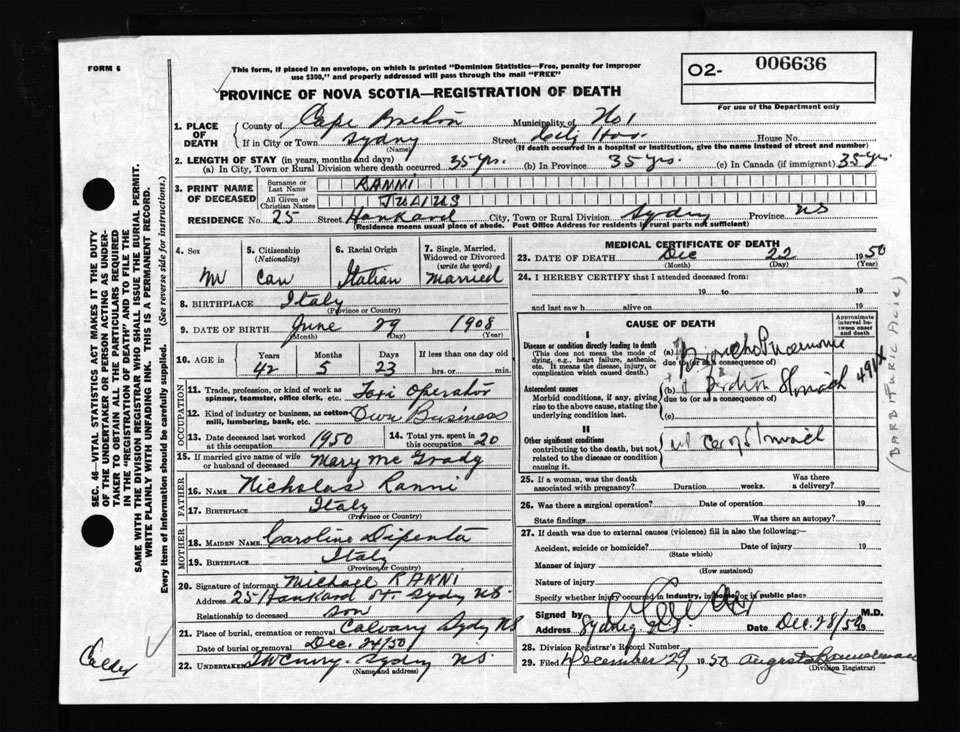 FORM 6
This form, if placed in an envelope, on which is printed "Dominion Statistics—Free, penalty for improper
use $300," and properly addressed will pass through the mail "FREE"
PROVINCE OF NOVA SCOTIA—REGISTRATION OF DEATH
O2- 006636
For use of the Department only
1. PLACE OF DEATH
County of Cape Breton Municipality of No 1
If in City or Town Sydney Street City Hos. House No.
(Name) (If death occurred in a hospital or institution, give the name instead of street and number)
2. LENGTH OF STAY (in years, months and days)
(a) In City, Town or Rural Division where death occurred 35 yrs. (b) In Province 35 yrs. (c) In Canada (if immigrant) 35 yrs
3. PRINT NAME OF DECEASED
Surname or Last Name RANNI
All Given or Christian Names JULIUS
RESIDENCE No. 25 Street Hankard City, Town or Rural Division Sydney Province NS
(Residence means usual place of abode. Post Office Address for residents in rural parts not sufficient)
4. Sex
M
5. Citizenship (Nationality)
Can
6. Racial Origin
Italian
7. Single, Married, Widowed or Divorced (write the word)
Married
8. BIRTHPLACE Italy
(Province or Country)
9. DATE OF BIRTH June 29 1908
(Month) (Day) (Year)
10. AGE in Years Months Days If less than one day old
42 5 23 hrs. or min.
OCCUPATION
11. Trade, profession, or kind of work as spinner, teamster, office clerk, etc. Taxi Operator
12. Kind of industry or business, as cotton mill, lumbering, bank, etc. Own Business
13. Date deceased last worked at this occupation 1950
14. Total yrs. spent in this occupation 20
15. If married give name of wife or husband of deceased Mary Mc Grady
FATHER
16. NAME Nicholas Ranni
17. BIRTHPLACE Italy
(Province or Country)
MOTHER
18. MAIDEN NAME Caroline Dipenta
19. BIRTHPLACE Italy
(Province or Country)
20. Signature of informant Michael RANNI
Address 25 Hankard St. Sydney NS.
Relationship to deceased son
21. Place of burial, cremation or removal Calvary Sydney NS
Date of burial or removal Dec. 24/50
22. Undertaker Sydney NS
(Name and address)
MEDICAL CERTIFICATE OF DEATH
23. DATE OF DEATH Dec 22 1950
(Month) (Day) (Year)
24. I HEREBY CERTIFY that I attended deceased from:
19 to 19
and last saw h alive on 19
CAUSE OF DEATH
Approximate interval between onset and death
I
Disease or condition directly leading to death
(This does not mean the mode of dying, e.g., heart failure, asthenia, etc. It means the disease, injury, or complication which caused death.)
(a) Broncho Pneumonia
due to (or as a consequence of)
Antecedent causes
Morbid conditions, if any, giving rise to the above cause, stating the underlying condition last.
(b)
491X
due to (or as a consequence of)
(c)
II
Other significant conditions
contributing to the death, but not related to the disease or condition causing it.
(BARBITURIC ACID)
25. If a woman, was the death associated with pregnancy? Duration weeks. Was there a delivery?
26. Was there a surgical operation? Date of operation 19
State findings Was there an autopsy?
27. If death was due to external causes (violence) fill in also the following:
Accident, suicide or homicide? Date of injury 19
(State which)
Manner of injury
(How sustained)
Nature of injury
Specify whether injury occurred in industry, in home or in public place
Signed by M.D.
Address Sydney N.S. Date Dec. 28/50 19
28. Division Registrar's Record Number
29. Filed December 29 1950
(Division Registrar)
SEC. 46—VITAL STATISTICS ACT MAKES IT THE DUTY
OF THE UNDERTAKER OR PERSON ACTING AS UNDER-
TAKER TO OBTAIN ALL THE PARTICULARS REQUIRED
IN THE "REGISTRATION OF DEATH" AND TO FILE THE
SAME WITH THE DIVISION REGISTRAR WHO SHALL ISSUE THE BURIAL PERMIT.
WRITE PLAINLY WITH UNFADING INK. THIS IS A PERMANENT RECORD.
Every item of information should be carefully supplied. (See reverse side for instructions.)